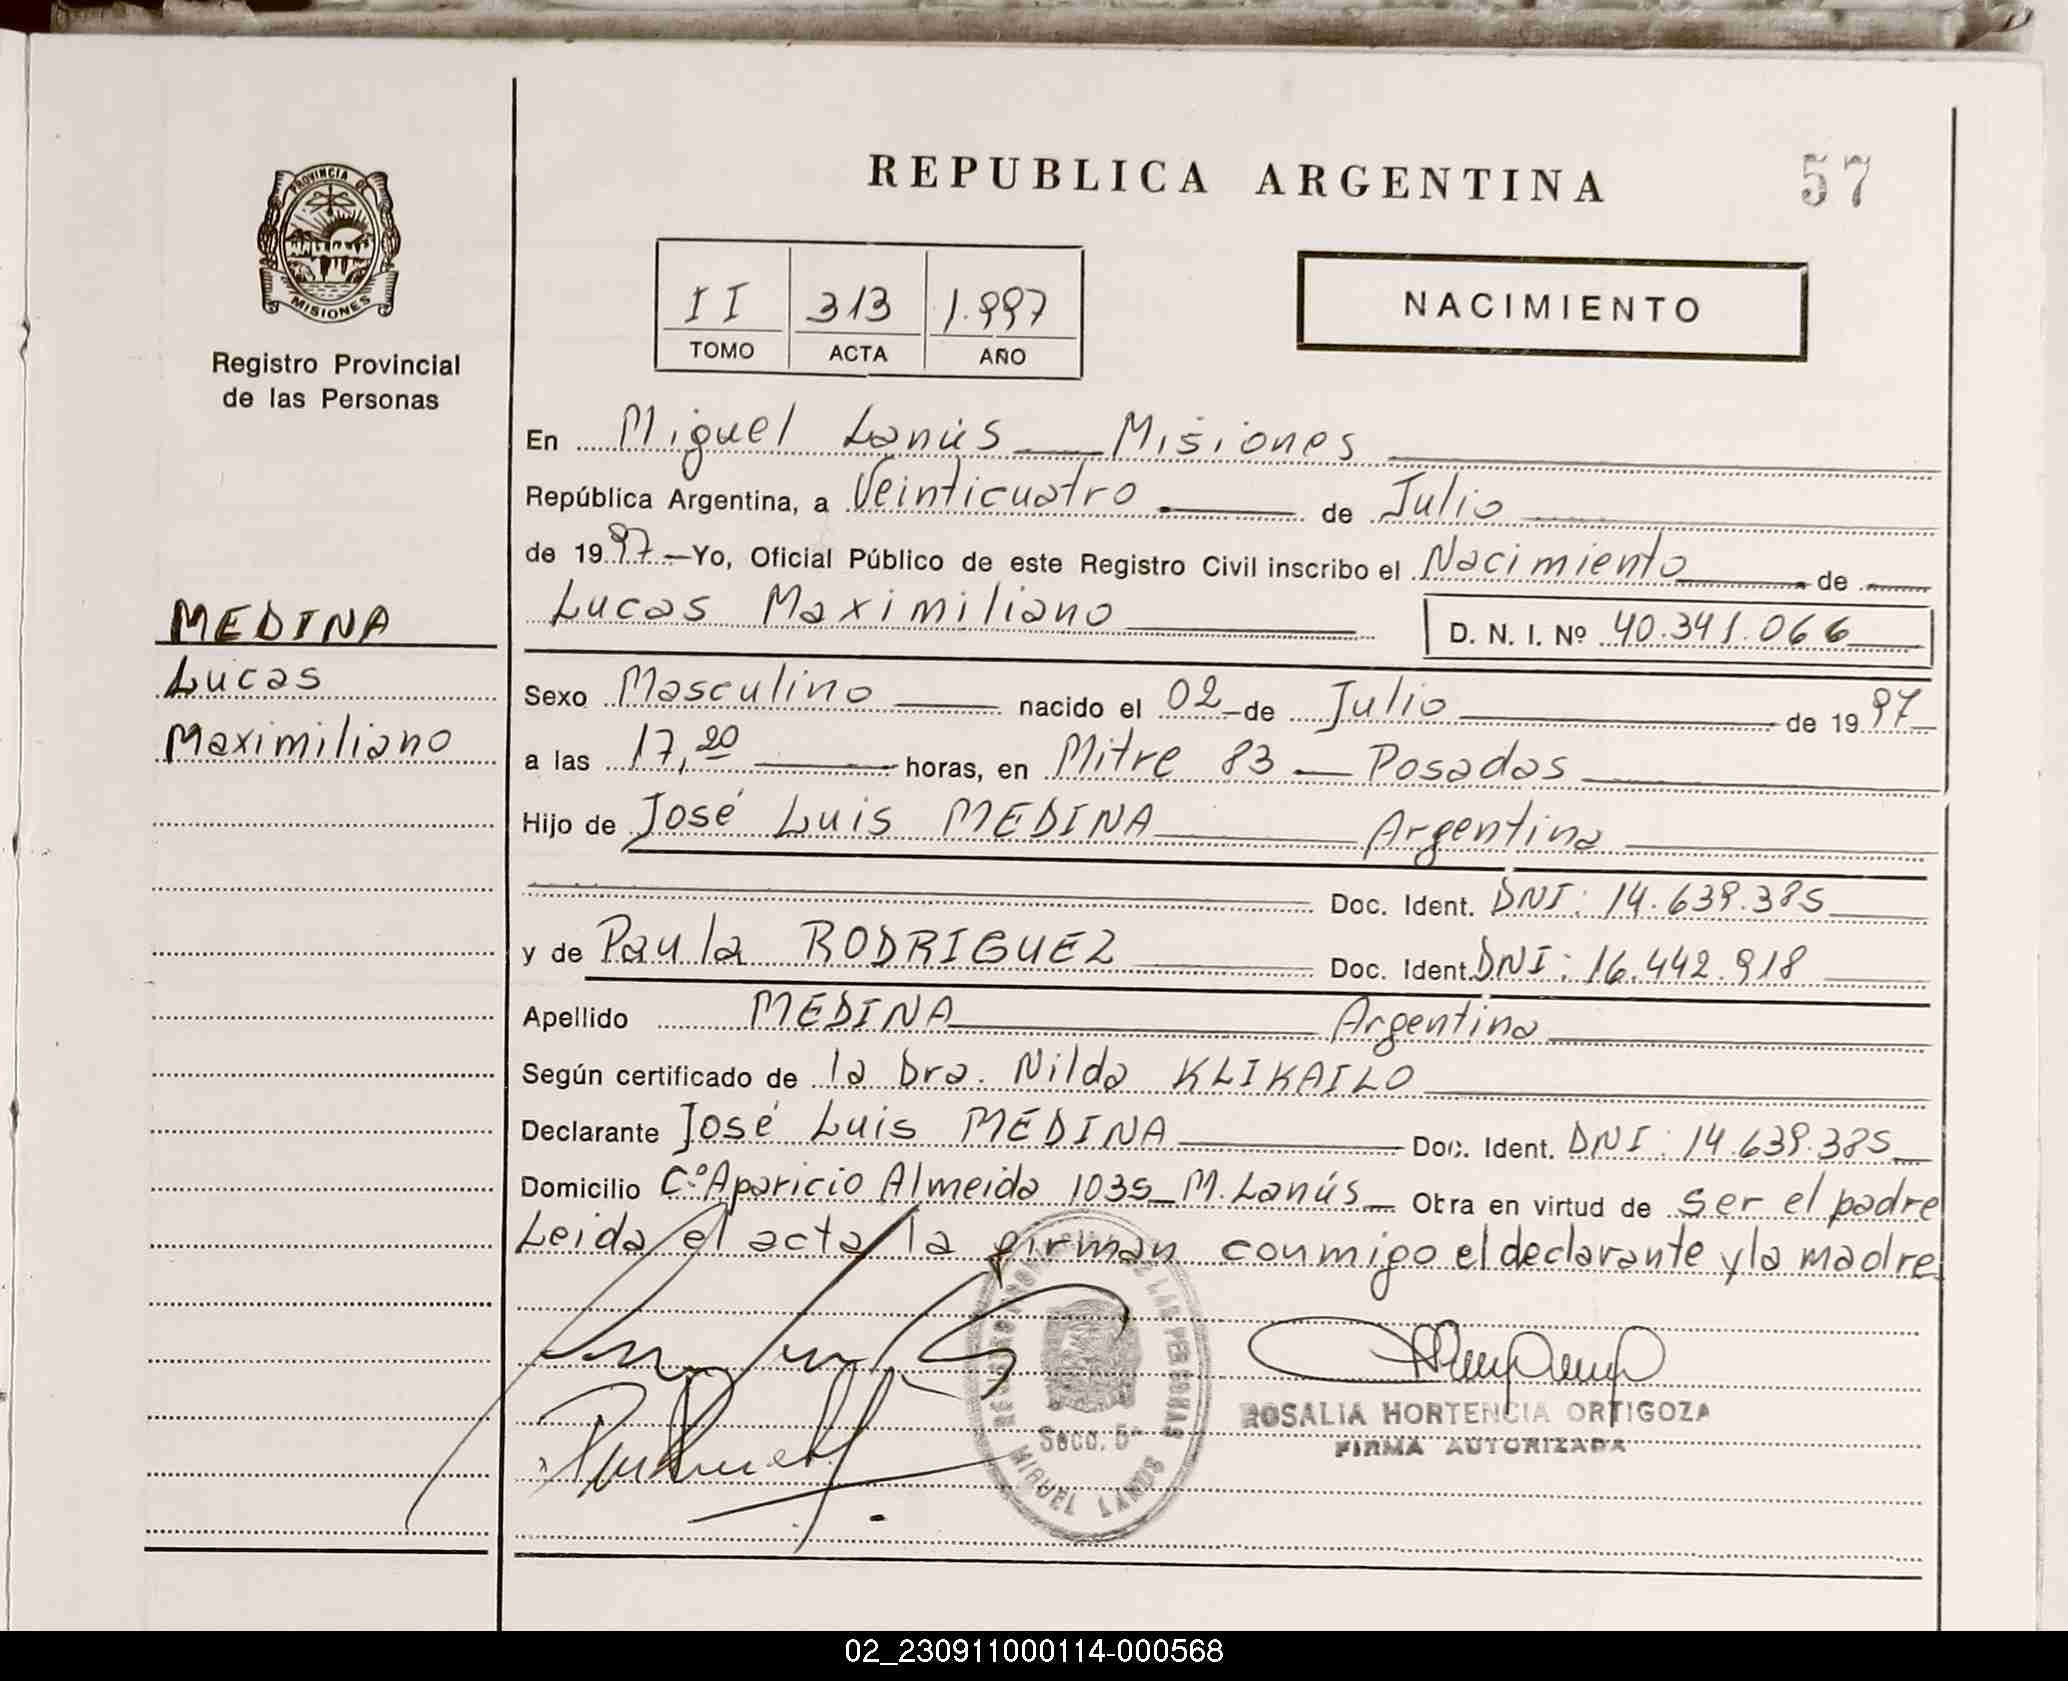 REPUBLICA ARGENTINA
57
PROVINCIA DE MISIONES
Registro Provincial
de las Personas
II 313 1.997
TOMO ACTA AÑO
NACIMIENTO
MEDINA
Lucas
Maximiliano
En Miguel Lanús Misiones
República Argentina, a Veinticuatro de Julio
de 1997.—Yo, Oficial Público de este Registro Civil inscribo el Nacimiento de
Lucas Maximiliano D. N. I. Nº 40.341.066
Sexo Masculino nacido el 02 de Julio de 1997
a las 17,20 horas, en Mitre 83 — Posadas
Hijo de José Luis MEDINA Argentina
Doc. Ident. DNI: 14.639.385
y de Paula RODRIGUEZ Doc. Ident. DNI: 16.442.918
Apellido MEDINA Argentina
Según certificado de la Dra. Nilda KLIKAILO
Declarante José Luis MEDINA Doc. Ident. DNI: 14.639.385
Domicilio Cº Aparicio Almeida 1035 M. Lanús Obra en virtud de ser el padre
Leida el acta la firman conmigo el declarante y la madre
Secc. 5ª
MIGUEL LANUS
ROSALIA HORTENCIA ORTIGOZA
FIRMA AUTORIZADA
02_230911000114-000568